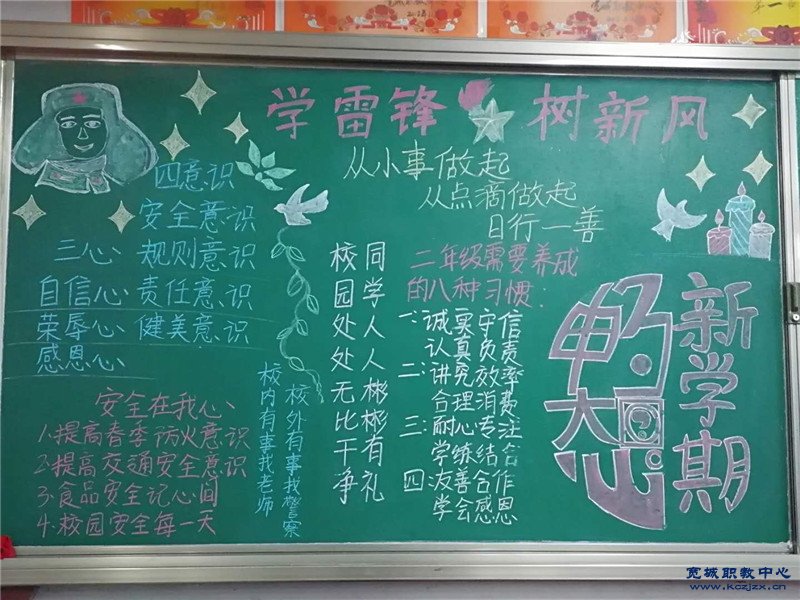 学雷锋 树新风
从小事做起
从点滴做起
日行一善
四意识
安全意识
三心、规则意识
自信心 责任意识
荣辱心 健美意识
感恩心
安全在我心、
1.提高春季防火意识
2.提高交通安全意识
3.食品安全记心间
4.校园安全每一天
校内有事找老师
校外有事找警察
同学人人彬彬有礼
校园处处无比干净
二年级需要养成
的八种习惯:
一:诚实守信
认真负责
二:讲究效率
合理消费
三:耐心专注
学练结合
四 友善合作
学会感恩
畅想
新学期
宽城职教中心
www.kczjzx.cn